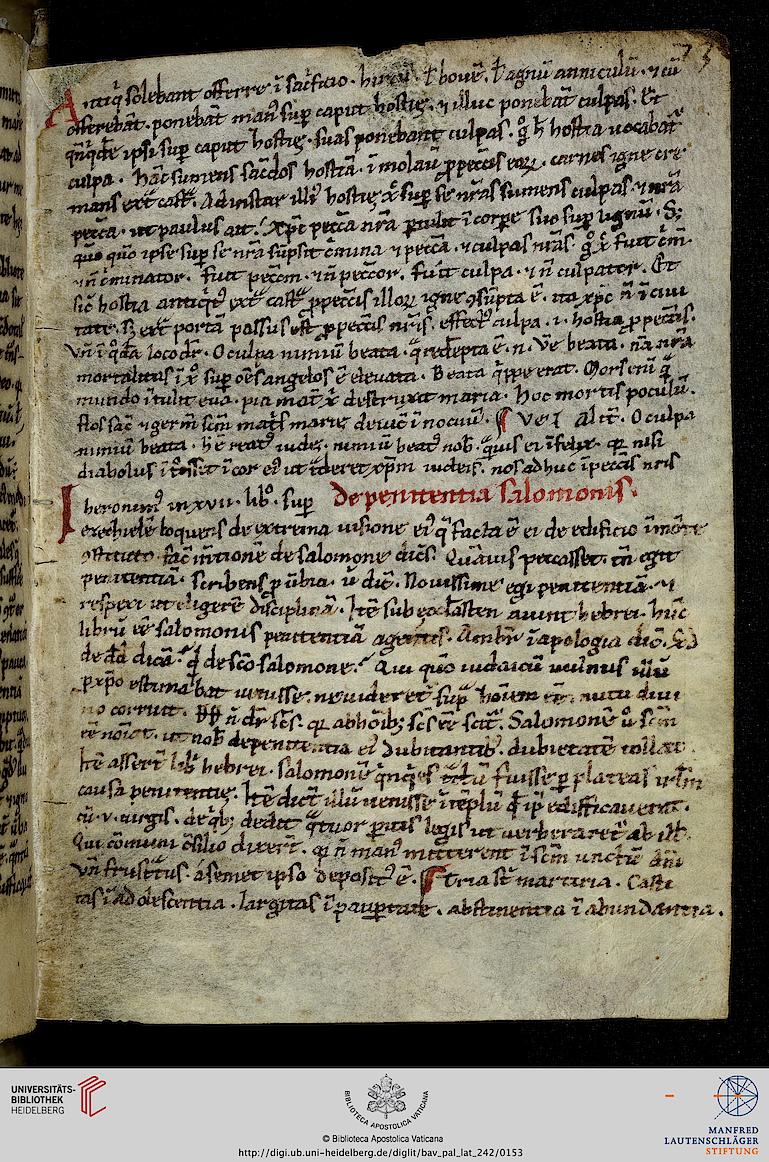 73
Antiq̄ solebant offerre ī sac̄ficio · hircū · ł bouē · ł agnū anniculū · ⁊ cū
offerebāt · ponebāt man⁹ suꝑ caput hostię · ⁊ illuc ponebāt culpas · Et
ipsi suꝑ caput hostię · suas ponebant culpas · g° h̄ hostia uocabat᷑
culpa · Hāc sumens sac̄dos hostiā · carnes igne cre
mans ext͞ cast͞ · Ad instar illi⁹ hostię x͞ suꝑ se nr̄as sumens culpas · ⁊ nr̄a
pecc̄a · ut paulus ait · Xp̄c pecc̄a nr̄a ꝑtulit ī corꝑe suo suꝑ lignū · S;
quo ipse suꝑ se nr̄a sūpsit c̄mina ⁊ pecc̄a · ⁊ culpas nr̄as g° x͞ fuit c̄m̄
⁊ n̄ c̄minator · fuit pecc̄m · ⁊ n̄ peccor · fuit culpa · ⁊ n̄ culpator · Et
sic̄ hostia ext͞ cast͞ ꝓ pecc̄is illoꝝ igne ꝯsūpta ē · ita xp̄c n̄ ī ciui
tate · S; ext͞ portā passus est ꝓ pecc̄is nr̄is · effect⁹ culpa · i · hostia ꝓ pecc̄is ·
Vn̄ ī q°dā loco dr̄ · O culpa nimiū beata · q̄ redēpta ē · n̄ · Ve beata · nā nr̄a
mortalitas ī x͞ suꝑ om̄s angelos ē eleuata · Beata q̄ppe erat · Mors enī q̄
mundo ītulit eua · pia mat͞ x͞ destruxit maria · Hoc mortis poculū ·
flos sac̄ ⁊ germ̄ sc̄m mat͞s marię ī nocuū · Vel Alit͞ · O culpa
nimiū beata · nimiū beat⁹ nob̄ · ei īfelix · q̄ nisi
diabolus ī cor ei⁹ ut t͞deret xp̄m iudeis · nos adhuc ī pecc̄is nr̄is
Iheronim⁹ in xvii · lib° · suꝑ de penitentia salomonis ·
ezechielē loquens de extrema uisione ei⁹ q̄ facta ē ei de edificio ī monte
ꝯstituto fac̄ m̄tionē de salomone dic̄s · Quāuis peccasset · tn̄ egit
penitentiā · scribens ꝓuerbia · u͞ dic̄ · Nouissime egi penitentiā · ⁊
respexi ut eligerē disciplinā · Itē sub eccl̄asten aiunt hebrei · hūc
librū eē salomonis penitentiā agentis · Ambr̄ ī apologia dic̄ · S;
de dd̄ dicā · q̄d de sc̄o salomone · Qui iudaicū uulnus illū
ꝓ xp̄o estimabat uenisse · ne uideret᷑ suꝑ homēm eē · nutu diui
no corruit · n̄ dr̄ sc̄s · q̄ ab hoīb; sc̄s eē scit᷑ · Salomonē u° sc̄m
eē nōīat · ut nob̄ de penitentia ei⁹ dubitantib; · dubietatē tollat ·
Itē asserūt lib̄ hebrei · salomonē fuisse ꝑ plateas irl̄m
causa penitentię · Itē dic̄t illū uenisse ī tēplū qd̄ ip̄e edifficauerat ·
cū · v · uirgis · de q̄b; dedit q̄tuor ꝑitis legis ut uerberaret᷑ ab ill̄ ·
Qui cōmuni ꝯsilio dixerūt · q̄ n̄ man⁹ mitterent ī sc̄m unctū dn̄i
Vn̄ frustrat⁹ · a semet ipso deposit⁹ ē · Tria st̄ martiria · Casti
tas ī adolescentia · largitas ī pauꝑtate · abstinentia ī abundantia ·
UNIVERSITÄTS-
BIBLIOTHEK
HEIDELBERG
BIBLIOTECA APOSTOLICA VATICANA
© Biblioteca Apostolica Vaticana
http://digi.ub.uni-heidelberg.de/diglit/bav_pal_lat_242/0153
MANFRED
LAUTENSCHLÄGER
STIFTUNG